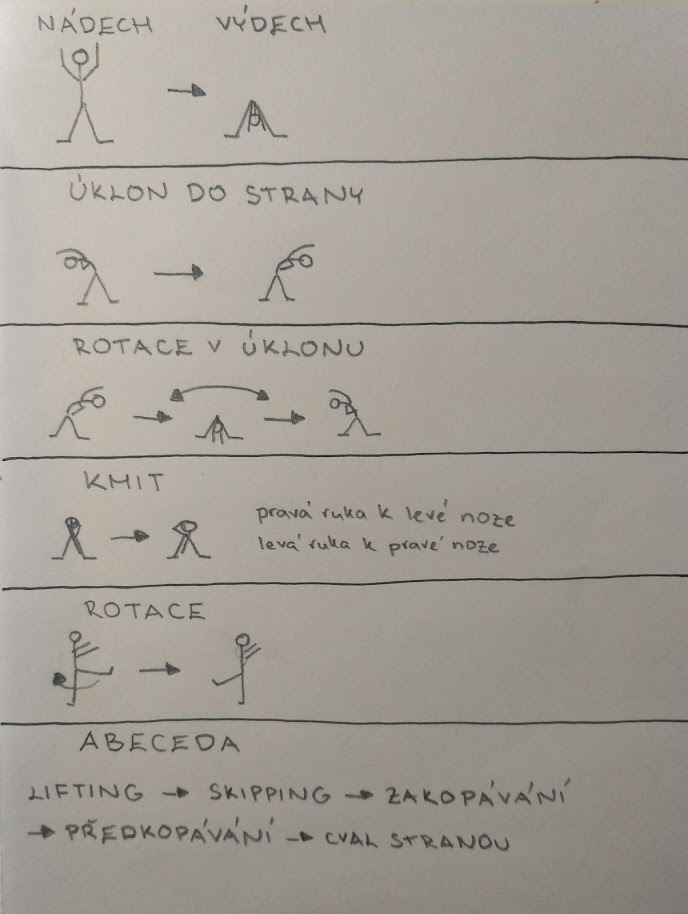 NÁDECH VÝDECH
ÚKLON DO STRANY
ROTACE V ÚKLONU
KMIT
pravá ruka k levé noze
levá ruka k pravé noze
ROTACE
ABECEDA
LIFTING → SKIPPING → ZAKOPÁVÁNÍ
→ PŘEDKOPÁVÁNÍ → CVAL STRANOU